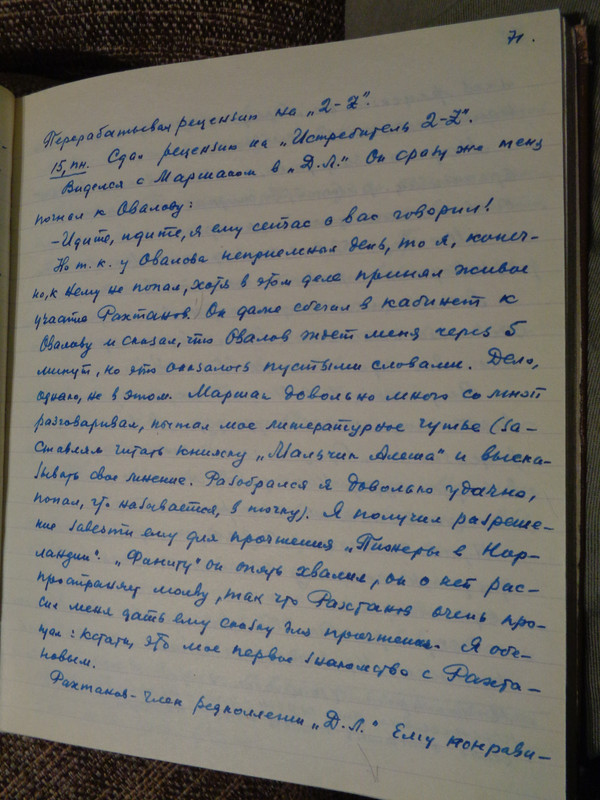 71.
Перерабатывал рецензию на „2-Z".
15, пн. Сдал рецензию на „Истребитель 2-Z".
Виделся с Маршаком в „Д.Л." Он сразу же меня
погнал к Овалову:
-Идите, идите, я ему сейчас о вас говорил!
Но т.к. у Овалова неприемный день, то я, конеч-
но, к нему не попал, хотя в этом деле принял живое
участие Рахтанов. Он даже сбегал в кабинет к
Овалову и сказал, что Овалов ждет меня через 5
минут, но это оказалось пустыми словами. Дело,
однако, не в этом. Маршак довольно много со мной
разговаривал, пытал мое литературное чутье (за-
ставлял читать книжку „Мальчик Алеша" и выска-
зывать свое мнение. Разобрался я довольно удачно,
попал, что называется, в точку). Я получил разреше-
ние завезти ему для прочтения „Пионеры в Нор-
ландии". „Фаниту" он опять хвалил, он о ней рас-
пространяет молву, так что Рахтанов очень про-
сил меня дать ему сказку для прочтения. Я обе-
щал; кстати, это мое первое знакомство с Рахта-
новым.
Рахтанов-член редколлегии „Д.Л." Ему понрави-